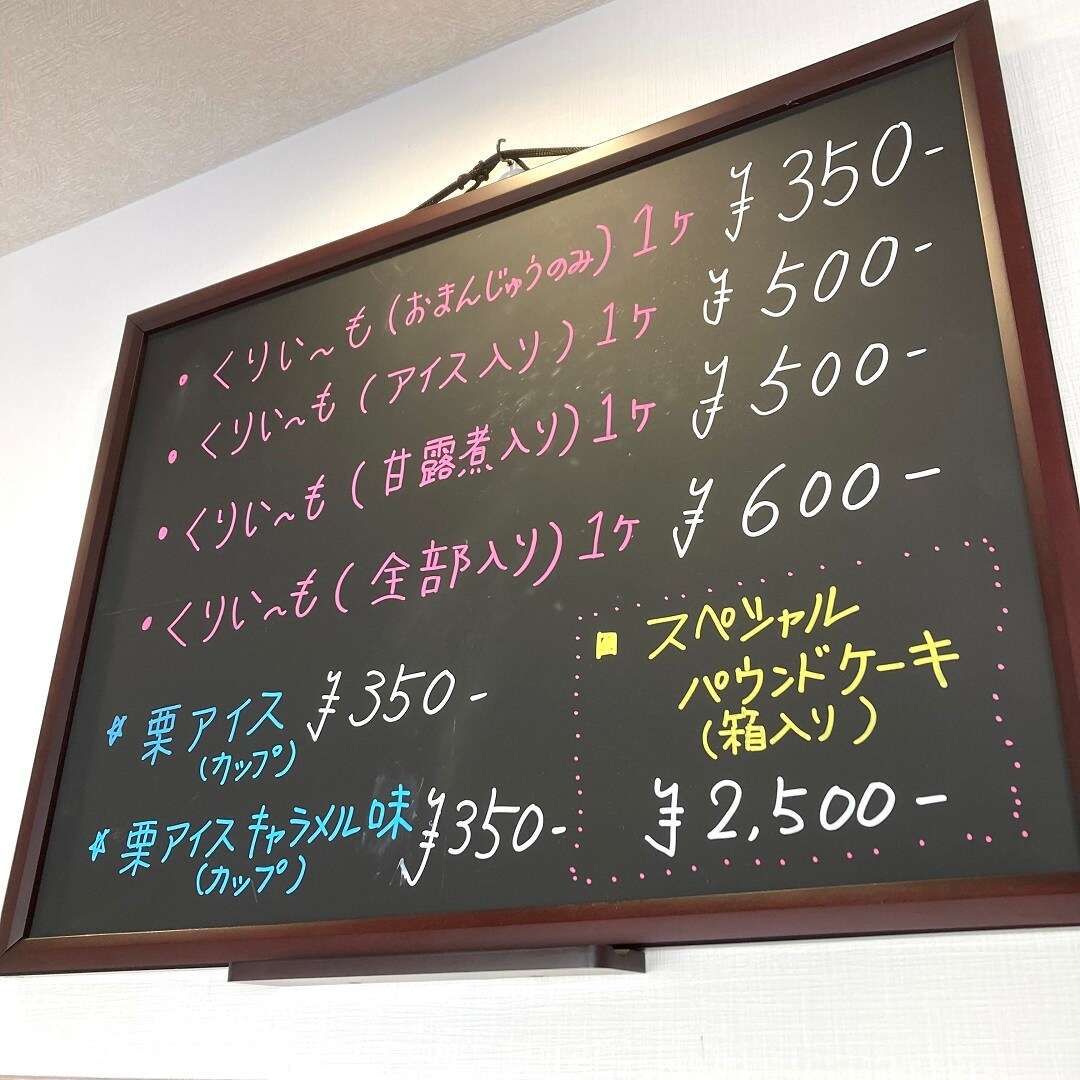 ・くりぃ〜も(おまんじゅうのみ)1ヶ ¥350-
・くりぃ〜も(アイス入り)1ヶ ¥500-
・くりぃ〜も(甘露煮入り)1ヶ ¥500-
・くりぃ〜も(全部入り)1ヶ ¥600-
☆ 栗アイス ¥350-
(カップ)
☆ 栗アイスキャラメル味 ¥350-
(カップ)
■ スペシャル
パウンドケーキ
(箱入り)
¥2,500-